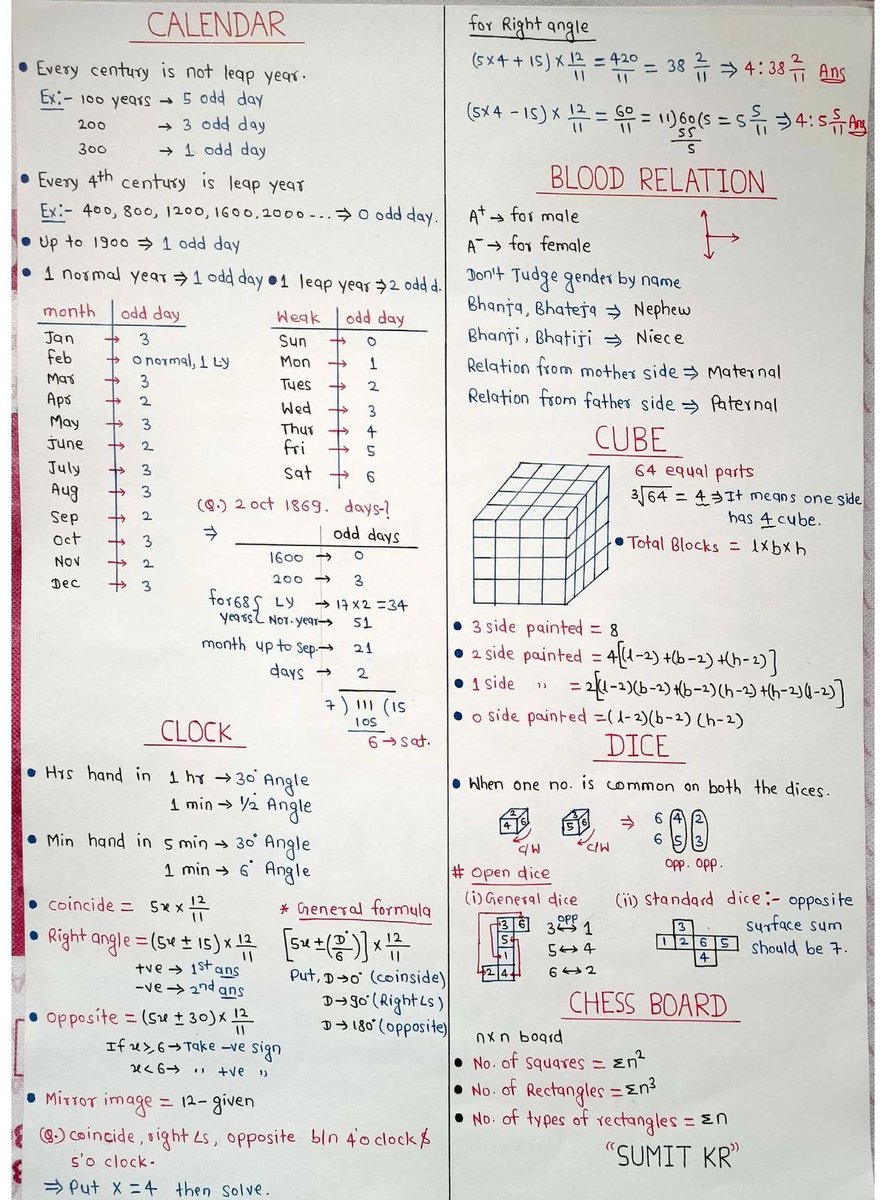 CALENDAR
• Every century is not leap year.
Ex:- 100 years → 5 odd day
200 → 3 odd day
300 → 1 odd day
• Every 4th century is leap year
Ex:- 400, 800, 1200, 1600, 2000 --- ⇒ 0 odd day.
• Up to 1900 ⇒ 1 odd day
• 1 normal year ⇒ 1 odd day • 1 leap year ⇒ 2 odd d.
month | odd day
Jan → 3
feb → 0 normal, 1 LY
Mar → 3
Apr → 2
May → 3
June → 2
July → 3
Aug → 3
Sep → 2
Oct → 3
Nov → 2
Dec → 3
Weak | odd day
Sun → 0
Mon → 1
Tues → 2
Wed → 3
Thur → 4
fri → 5
Sat → 6
(Q.) 2 oct 1869. days-?
⇒ odd days
1600 → 0
200 → 3
for 68 years { LY → 17×2 = 34
Nor. year → 51
month up to Sep. → 21
days → 2
7 ) 111 ( 15
105
6 → sat.
CLOCK
• Hrs hand in 1 hr → 30° Angle
1 min → 1/2° Angle
• Min hand in 5 min → 30° Angle
1 min → 6° Angle
• Coincide = 5x × 12/11
• Right angle = (5x ± 15) × 12/11
+ve → 1st ans
-ve → 2nd ans
• Opposite = (5x ± 30) × 12/11
If x ≥ 6 → Take -ve sign
x < 6 → ,, +ve ,,
* General formula
[5x ± (D°/6)] × 12/11
Put, D → 0° (coinside)
D → 90° (Right ∠s)
D → 180° (opposite)
• Mirror image = 12 - given
(Q.) coincide, right ∠s, opposite b/n 4'o clock &
5'o clock.
⇒ Put X = 4 then solve.
for Right angle
(5×4 + 15) × 12/11 = 420/11 = 38 2/11 ⇒ 4:38 2/11 Ans
(5×4 - 15) × 12/11 = 60/11 = 11)60(5 = 5 5/11 ⇒ 4:5 5/11 Ans
55
5
BLOOD RELATION
A+ → for male
A- → for female
Don't Judge gender by name
Bhanja, Bhateja ⇒ Nephew
Bhanji, Bhatiji ⇒ Niece
Relation from mother side ⇒ Maternal
Relation from father side ⇒ Paternal
CUBE
64 equal parts
³√64 = 4 ⇒ It means one side
has 4 cube.
• Total Blocks = l×b×h
• 3 side painted = 8
• 2 side painted = 4[(l-2)+(b-2)+(h-2)]
• 1 side ,, = 2[(l-2)(b-2)+(b-2)(h-2)+(h-2)(l-2)]
• 0 side painted = (l-2)(b-2)(h-2)
DICE
• When one no. is common on both the dices.
2 4 6 3 5 6 ⇒ 6 4 2
6 5 3
C/W C/W opp. opp.
# Open dice
(i) General dice
3 6
5
1
2 4
opp
3 ↔ 1
5 ↔ 4
6 ↔ 2
(ii) Standard dice :- opposite
surface sum
should be 7.
3
1 2 6 5
4
CHESS BOARD
n×n board
• No. of squares = Σn²
• No. of Rectangles = Σn³
• No. of types of rectangles = Σn
"SUMIT KR"